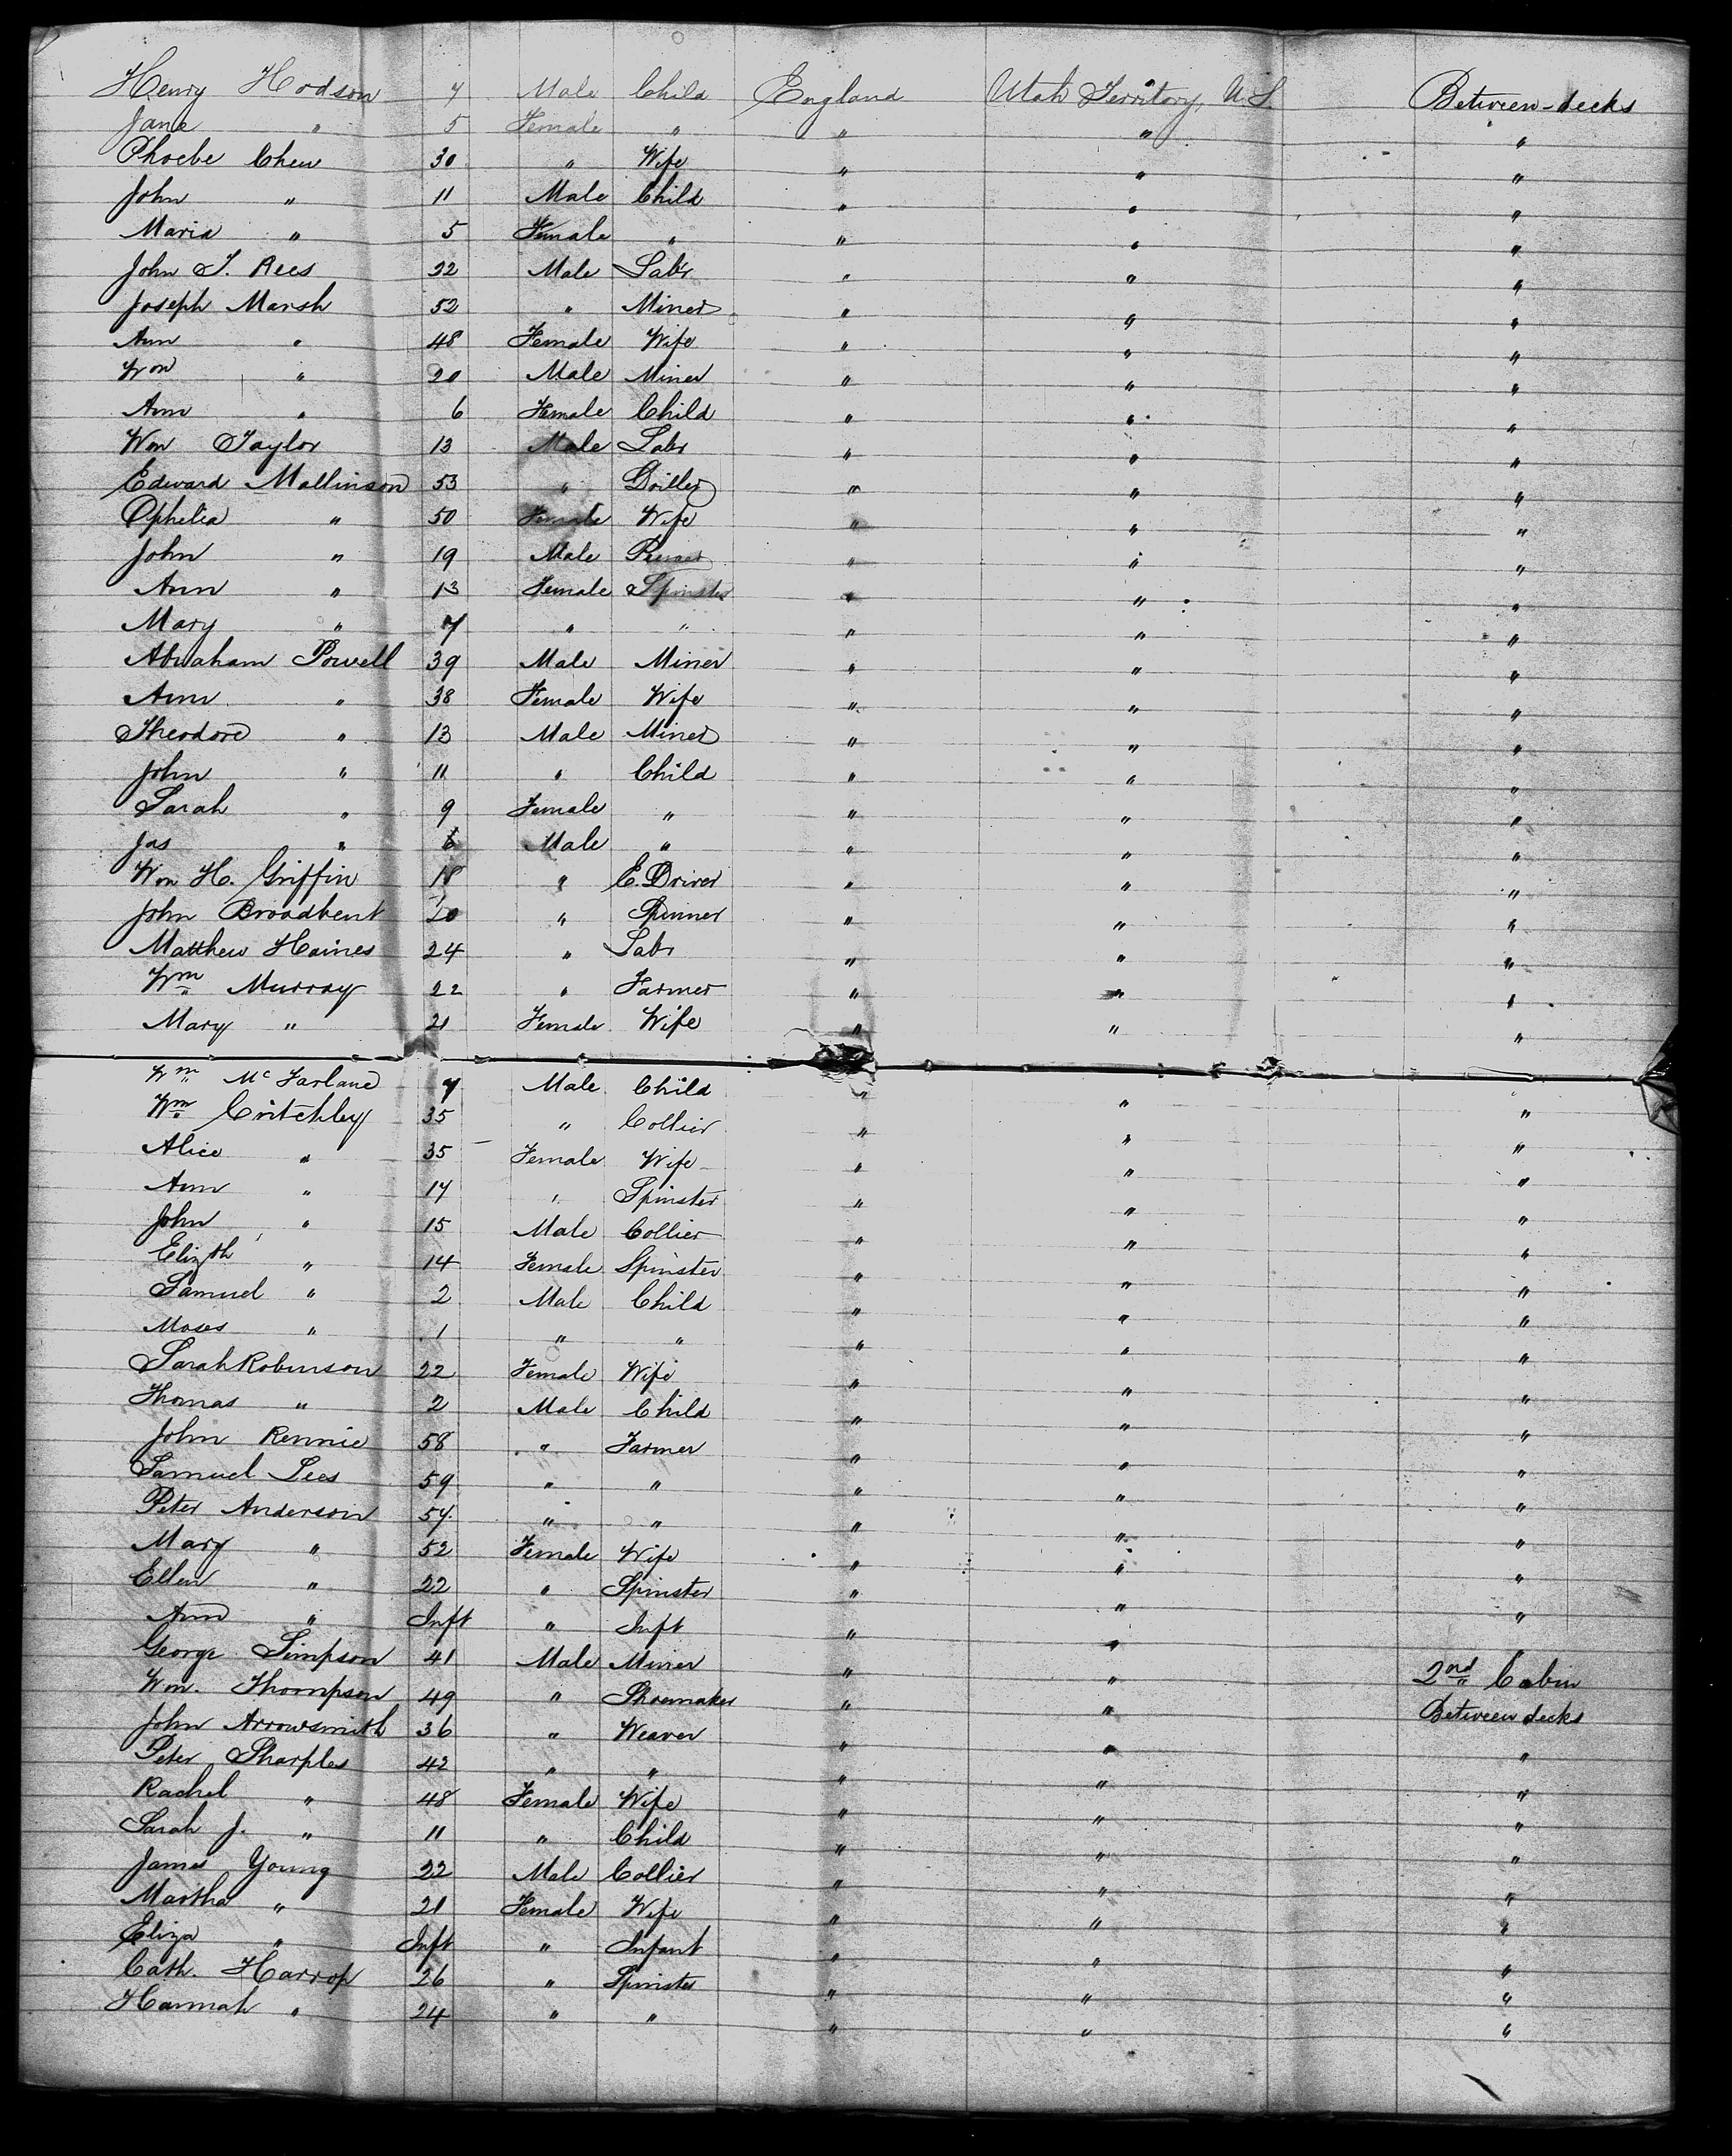 Henry Hodson 7 Male Child England Utah Territory, U.S Between-decks
Jane " 5 Female " " " "
Phoebe Chew 30 " Wife " " "
John " 11 Male Child " " "
Maria " 5 Female " " " "
John T. Rees 22 Male Labr " " "
Joseph Marsh 52 " Miner " " "
Ann " 48 Female Wife " " "
Wm " 20 Male Miner " " "
Ann " 6 Female Child " " "
Wm Taylor 13 Male Labr " " "
Edward Mallinson 53 " " " "
Ophelia " 50 Female Wife " " "
John " 19 Male " " "
Ann " 13 Female Spinster " " "
Mary " 7 " " " " "
Abraham Powell 39 Male Miner " " "
Ann " 38 Female Wife " " "
Theodore " 13 Male Miner " " "
John " 11 " Child " " "
Sarah " 9 Female " " " "
Jas " 6 Male " " " "
Wm H. Griffin 18 " E. Driver " " "
John Broadbent 20 " Spinner " " "
Matthew Haines 24 " Labr " " "
Wm Murray 22 " Farmer " " "
Mary " 21 Female Wife " " "
Wm McFarland 7 Male Child " " "
Wm Critchley 35 " Collier " " "
Alice " 35 Female Wife " " "
Ann " 17 " Spinster " " "
John " 15 Male Collier " " "
Elizth " 14 Female Spinster " " "
Samuel " 2 Male Child " " "
Moses " 1 " " " " "
Sarah Robinson 22 Female Wife " " "
Thomas " 2 Male Child " " "
John Rennie 58 " Farmer " " "
Samuel Lees 59 " " " " "
Peter Anderson 57 " " " " "
Mary " 52 Female Wife " " "
Ellen " 22 " Spinster " " "
Ann " Inft " Inft " " "
George Simpson 41 Male Miner " " 2nd Cabin
Wm. Thompson 49 " Shoemaker " " Between decks
John Arrowsmith 36 " Weaver " " "
Peter Sharples 42 " " " " "
Rachel " 48 Female Wife " " "
Sarah J. " 11 " Child " " "
James Young 22 Male Collier " " "
Martha " 21 Female Wife " " "
Eliza " Inft " Infant " " "
Cath. Harrop 26 " Spinster " " "
Hannah " 24 " " " " "